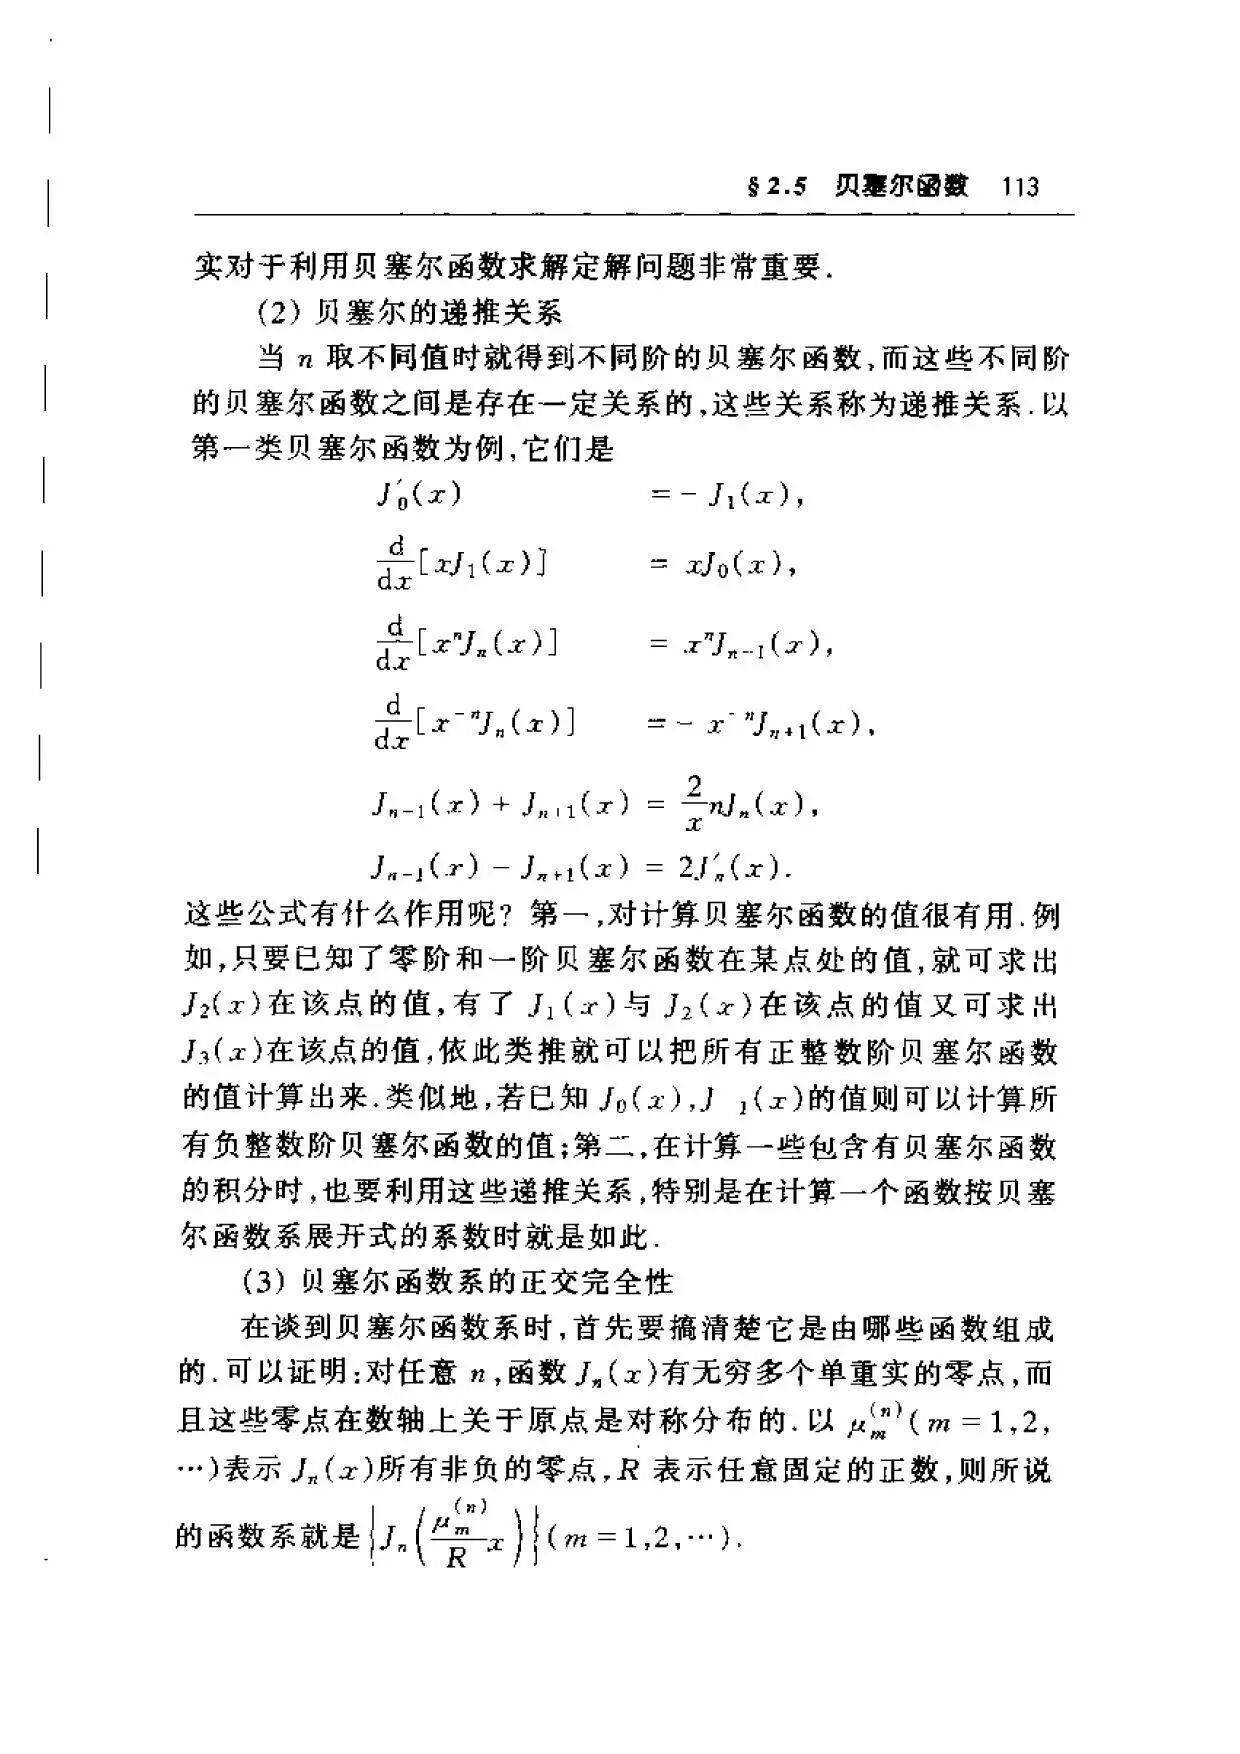 §2.5 贝塞尔函数 113
实对于利用贝塞尔函数求解定解问题非常重要.
(2) 贝塞尔的递推关系
当 n 取不同值时就得到不同阶的贝塞尔函数,而这些不同阶
的贝塞尔函数之间是存在一定关系的,这些关系称为递推关系.以
第一类贝塞尔函数为例,它们是
J′₀(x) = − J₁(x),
d/dx[xJ₁(x)] = xJ₀(x),
d/dx[xⁿJₙ(x)] = xⁿJₙ₋₁(x),
d/dx[x⁻ⁿJₙ(x)] = − x⁻ⁿJₙ₊₁(x),
Jₙ₋₁(x) + Jₙ₊₁(x) = 2/x nJₙ(x),
Jₙ₋₁(x) − Jₙ₊₁(x) = 2J′ₙ(x).
这些公式有什么作用呢? 第一,对计算贝塞尔函数的值很有用.例
如,只要已知了零阶和一阶贝塞尔函数在某点处的值,就可求出
J₂(x)在该点的值,有了 J₁(x)与 J₂(x)在该点的值又可求出
J₃(x)在该点的值,依此类推就可以把所有正整数阶贝塞尔函数
的值计算出来.类似地,若已知 J₀(x),J ₁(x)的值则可以计算所
有负整数阶贝塞尔函数的值;第二,在计算一些包含有贝塞尔函数
的积分时,也要利用这些递推关系,特别是在计算一个函数按贝塞
尔函数系展开式的系数时就是如此.
(3) 贝塞尔函数系的正交完全性
在谈到贝塞尔函数系时,首先要搞清楚它是由哪些函数组成
的.可以证明:对任意 n,函数 Jₙ(x)有无穷多个单重实的零点,而
且这些零点在数轴上关于原点是对称分布的.以 μₘ⁽ⁿ⁾(m = 1,2,
…)表示 Jₙ(x)所有非负的零点,R 表示任意固定的正数,则所说
的函数系就是{Jₙ(μₘ⁽ⁿ⁾/R x)}(m = 1,2,…).